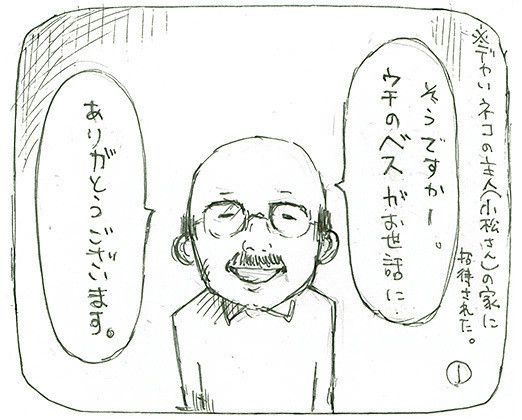 ※デカいネコの主人(小松さん)の家に
招待された。
そうですかー。
ウチのベスがお世話に
ありがとうございます。
①